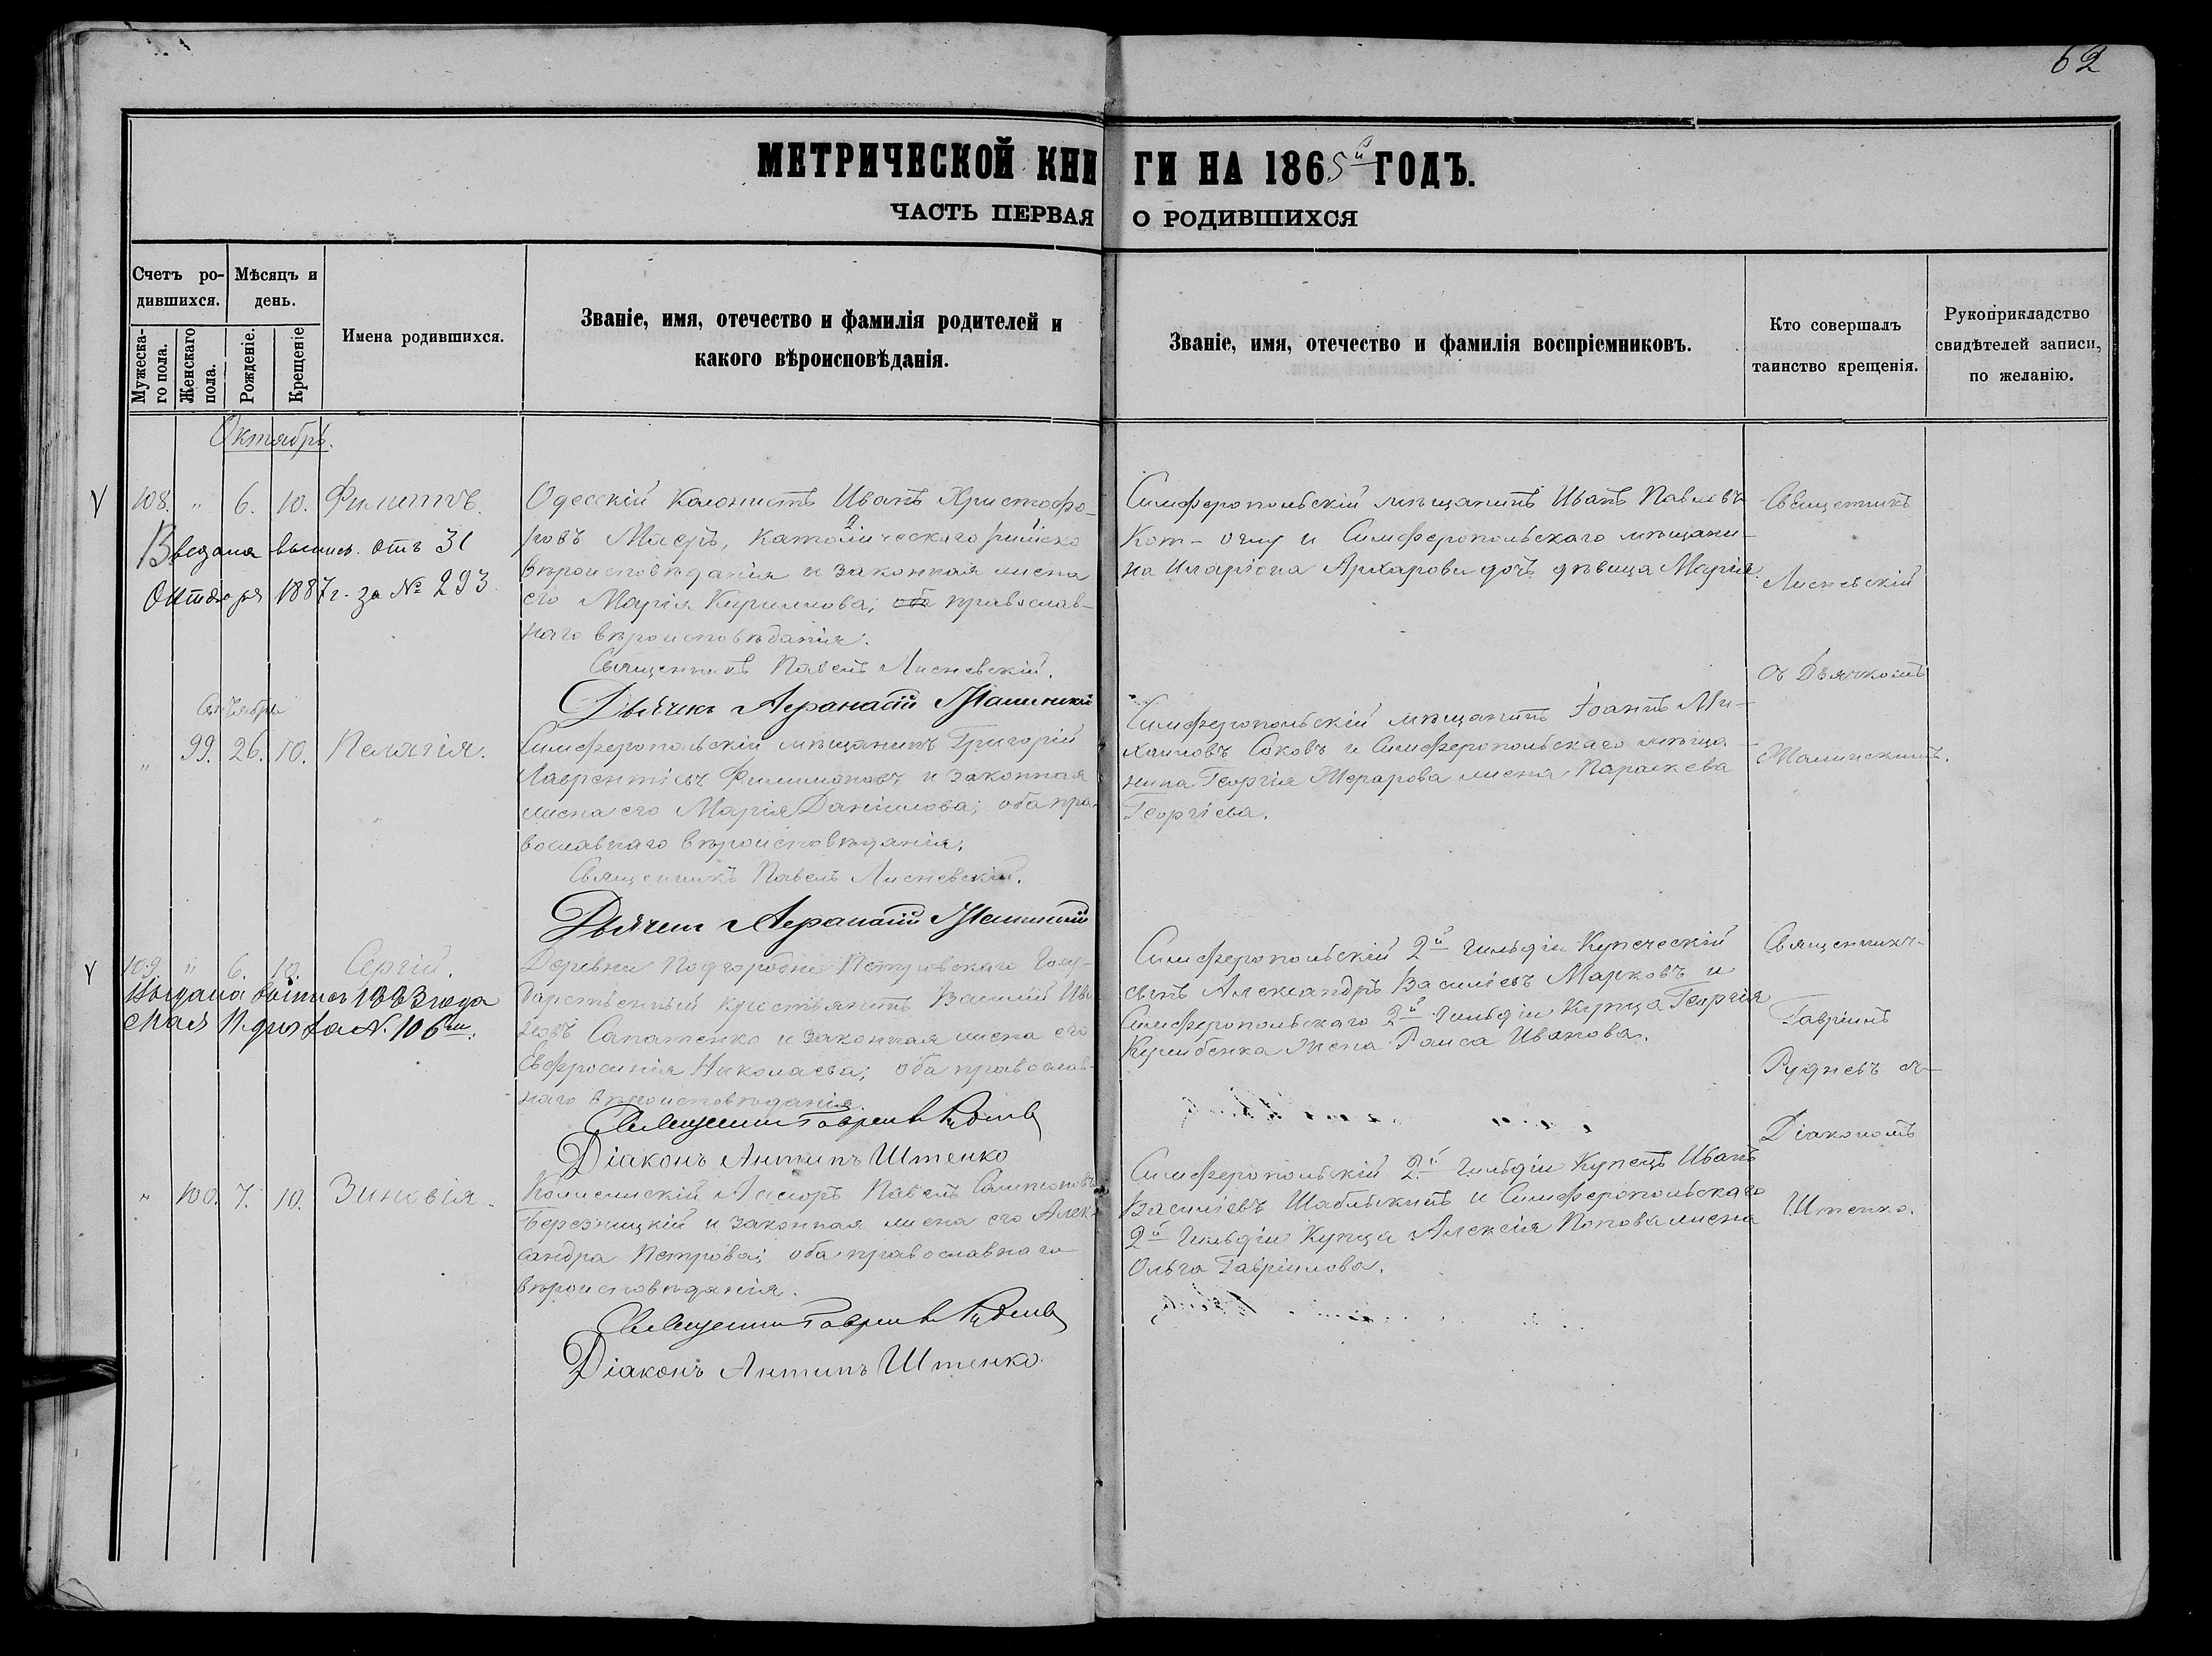 62
МЕТРИЧЕСКОЙ КНИГИ НА 1865й ГОДЪ.
ЧАСТЬ ПЕРВАЯ О РОДИВШИХСЯ
Счетъ родившихся.
Мѣсяцъ и день.
Мужескаго пола.
Женскаго пола.
Рожденіе.
Крещеніе
Имена родившихся.
Званіе, имя, отечество и фамилія родителей и
какого вѣроисповѣданія.
Званіе, имя, отечество и фамилія воспріемниковъ.
Кто совершалъ
таинство крещенія.
Рукоприкладство
свидѣтелей записи,
по желанію.
Октябрь.
108. " 6. 10. Филиппъ.
Одесскій Колонистъ Иванъ Христофо-
ровъ Маеръ, Католическаго римско
вѣроисповѣданія и законная жена
его Марія Кириллова; оба православ-
наго вѣроисповѣданія.
Священникъ Павелъ Лисневскій.
Дьячекъ Афанасій
выпись. отъ 31
Октября 1887 г. за № 293
Симферопольскій мѣщанинъ Иванъ Павловъ
и Симферопольскаго мѣщани-
на Иларіона Архарова дочь дѣвица Марія.
Священникъ
Лисневскій
съ Дьячкомъ
Сентября
" 99. 26. 10. Пелагія.
Симферопольскій мѣщанинъ Григорій
Лаврентіевъ Филимоновъ и законная
жена его Марія Даніилова; оба пра-
вославнаго вѣроисповѣданія.
Священникъ Павелъ Лисневскій.
Дьячекъ Афанасій
Симферопольскій мѣщанинъ Іоаннъ Ми-
хаиловъ Соковъ и Симферопольскаго мѣща-
нина Георгія жена Параскева
Георгіева.
109. " 6. 10. Сергій.
Выдана выпись 1883 года
Мая 11 дня за № 106
Деревни Подгородне Петровскаго Госу-
дарственный крестьянинъ Василій Ива-
новъ и законная жена его
Евфросинія Николаева; оба православ-
наго вѣроисповѣданія.
Священникъ Гавріилъ Рудневъ
Діаконъ Антипъ Штенко
Симферопольскій 2й гильдіи Купеческій
сынъ Александръ Василіевъ Марковъ и
Симферопольскаго 2й гильдіи Купца Георгія
жена Раиса Иванова.
Священникъ
Гавріилъ
Рудневъ съ
Діакономъ
Штенко.
" 100. 7. 10. Зиновія.
Павелъ
Березницкій и законная жена его Алек-
сандра Петрова; оба православнаго
вѣроисповѣданія.
Священникъ Гавріилъ Рудневъ
Діаконъ Антипъ Штенко
Симферопольскій 2й гильдіи Купецъ Иванъ
Василіевъ и Симферопольскаго
2й гильдіи Купца Алексія Попова жена
Ольга Гавріилова.